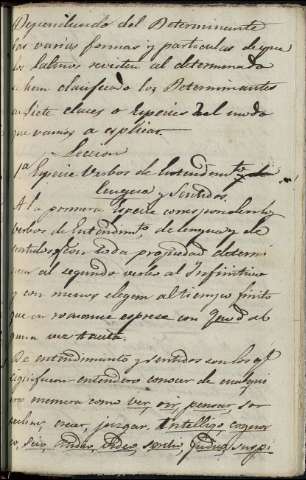 Dependiendo del Determinante
las varias formas y particulas de que
los latinos revisten al determinado
se han clasificado los Determinantes
en siete clases o Especies del modo
que vamos a esplicar.
Leccion
1ª Especie Verbos de Entendimto
lengua y Sentidos.
A la primera Especie corresponden los
verbos de Entendimto de lengua y de
sentidos, con toda propiedad determi
nan al segundo verbo al Infinitivo
y con menos elegan al tiempo finito
que en romance espresa con Quod al
guna vez
De entendimiento y sentidos son los qe
significan entender o conocer de cualquie
ra manera como ver, oir, pensar, sos
pechar, creer, juzgar, Intelligo, cognos
co, scio, Audio, Video, Judico, suspi